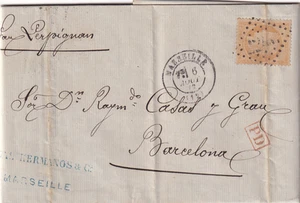 Par Perpignan
MARSEILLE
6
Sor. Dn. Raymdo. Casas y Grau
Barcelona
PD
HERMANOS & Co
MARSEILLE